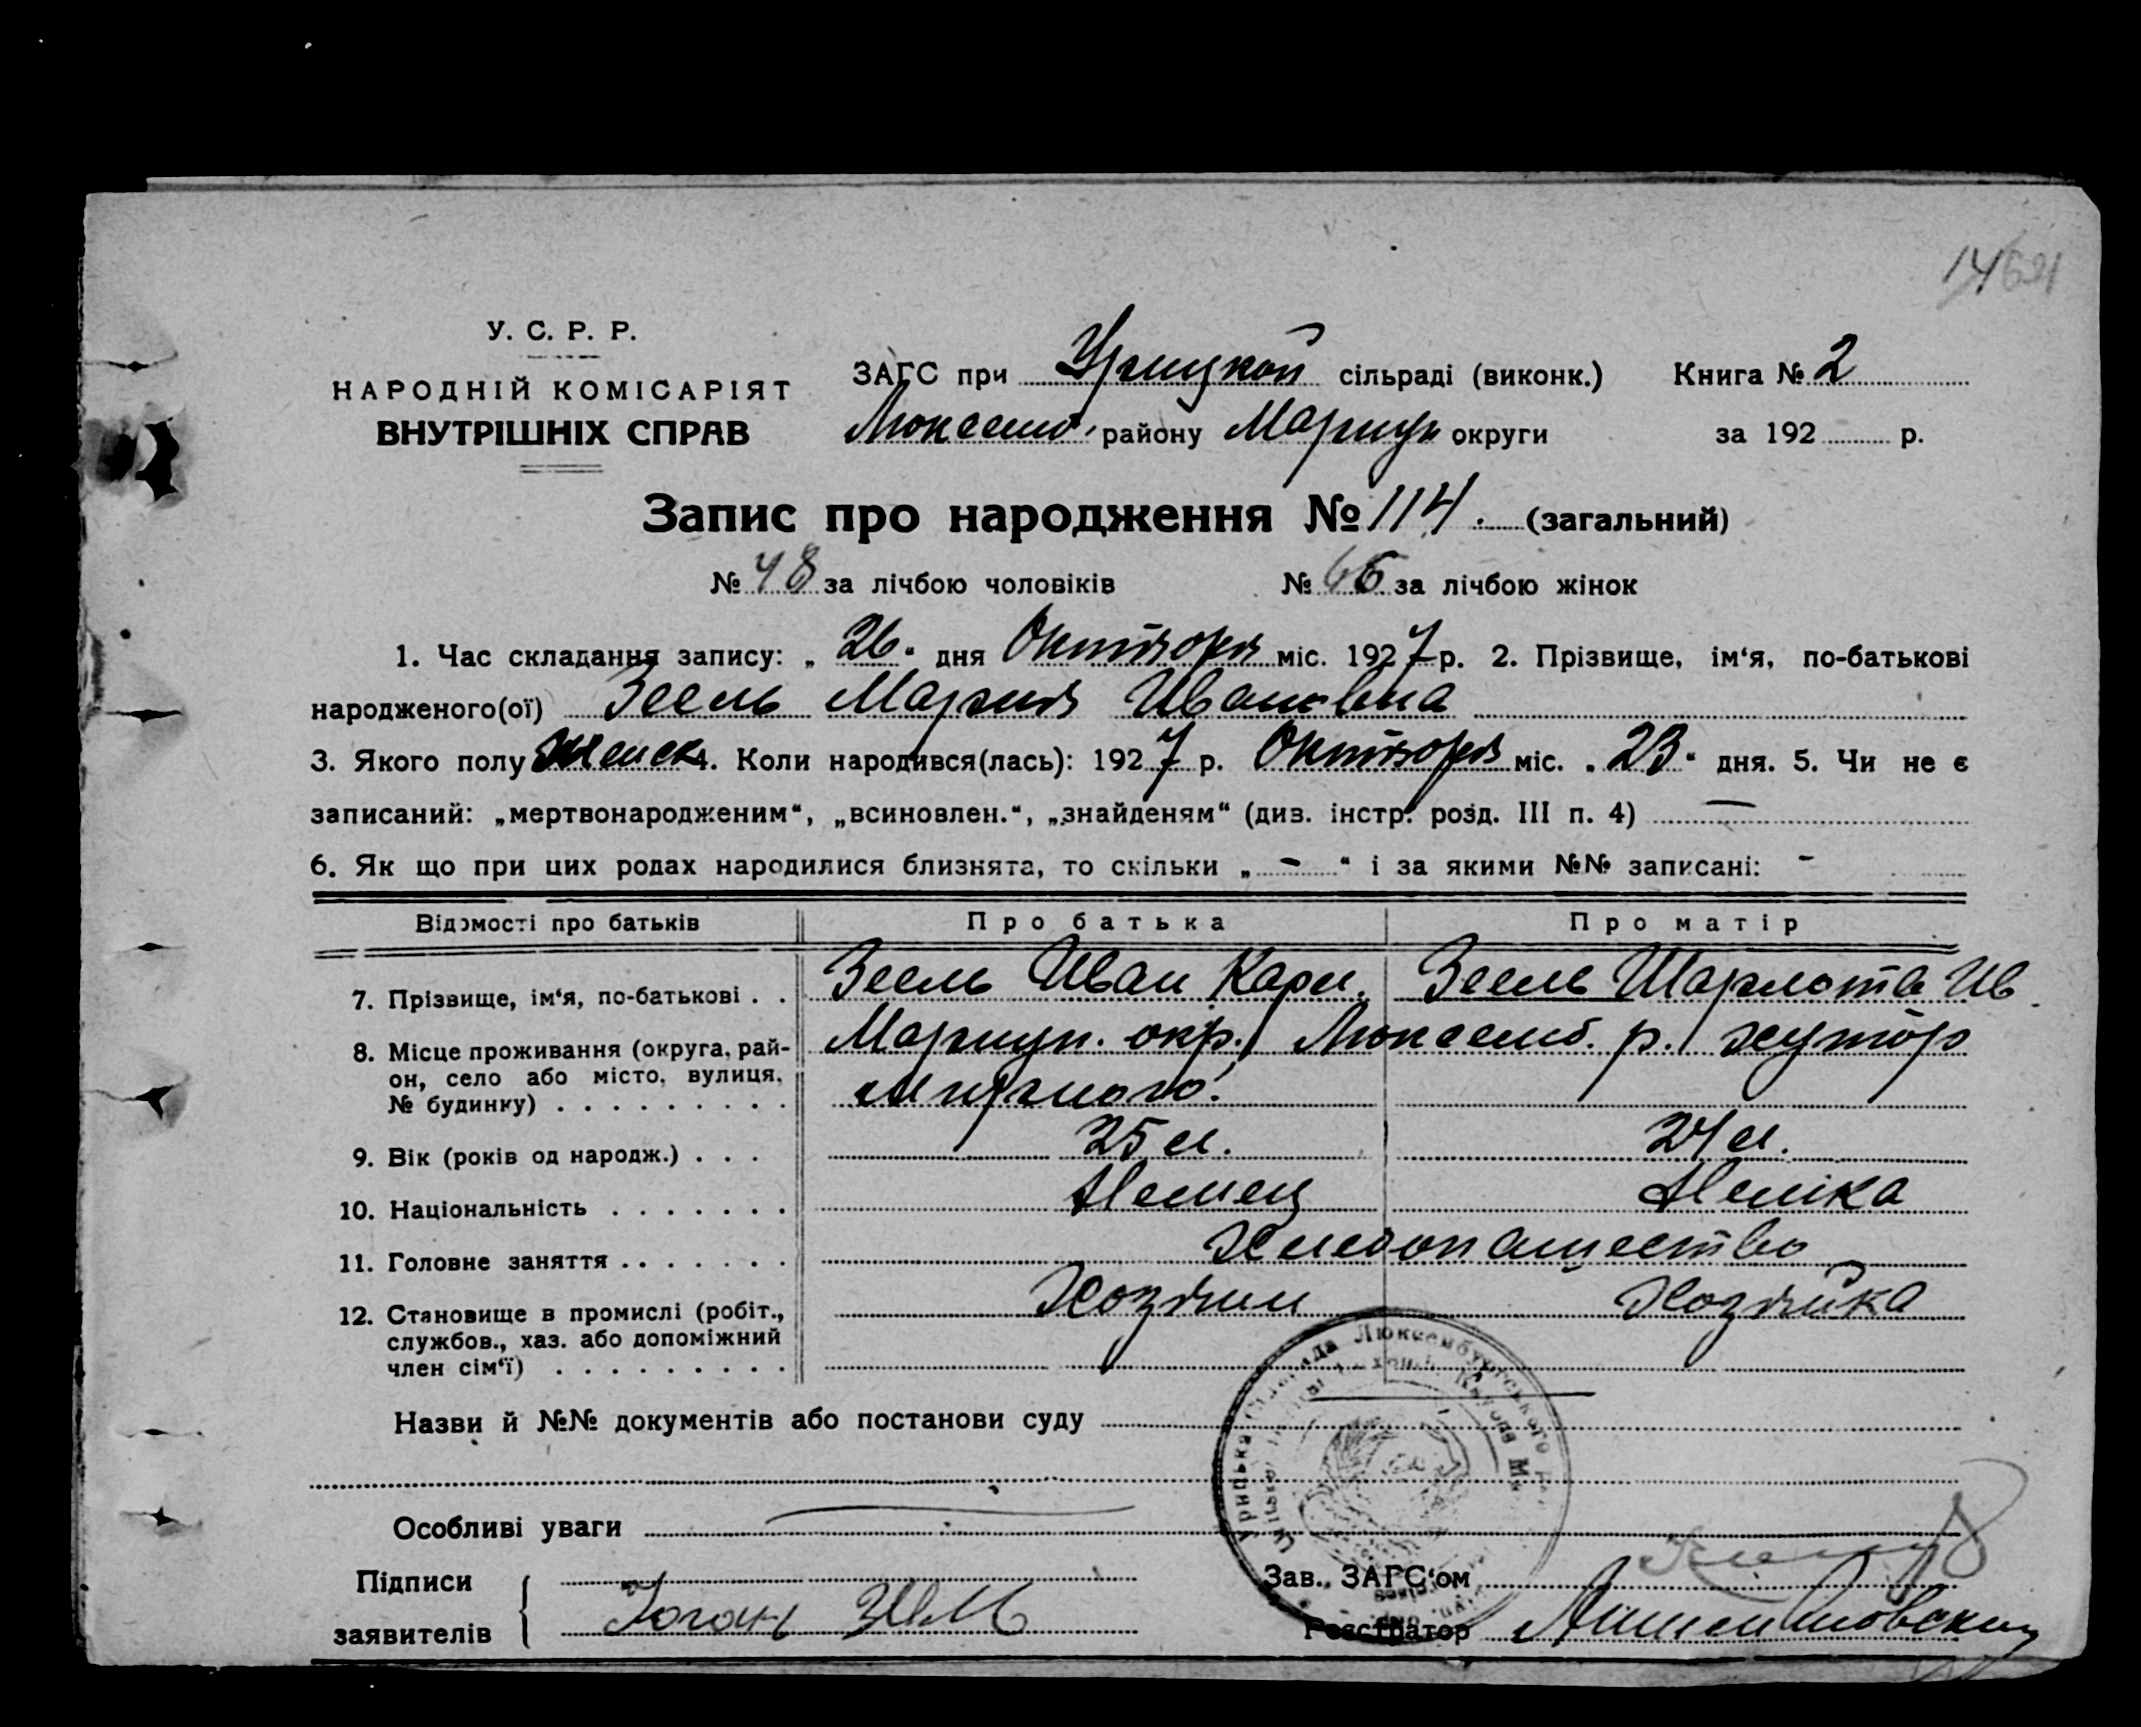 У. С. Р. Р.
НАРОДНІЙ КОМІСАРІЯТ
ВНУТРІШНІХ СПРАВ
ЗАГС при Урицкой сільраді (виконк.)
Люксемб. району Мариуп округи
Книга № 2
за 192 р.
Запис про народження № 114. (загальний)
№ 48 за лічбою чоловіків № 66 за лічбою жінок
1. Час складання запису: „ 26 “ дня Октября міс. 1927 р. 2. Прізвище, ім‘я, по-батькові
народженого(ої) Зеель Мария Ивановна
3. Якого полу Женск 4. Коли народився(лась): 1927 р. Октября міс. „ 23 “ дня. 5. Чи не є
записаний: „мертвонародженим“, „всиновлен.“, „знайденям“ (див. інстр. розд. III п. 4) —
6. Як що при цих родах народилися близнята, то скільки „ - “ і за якими №№ записані: -
Відомості про батьків Про батька Про матір
7. Прізвище, ім‘я, по-батькові . . Зеель Иван Карл. Зеель Шарлота Ив
8. Місце проживання (округа, рай- Мариуп. окр. / Люксемб. р. / хутор
он, село або місто, вулиця,
№ будинку) . . . . . . . . .
9. Вік (років од народж.) . . . 25 л. 24 л.
10. Національність . . . . . . . Немец Немка
11. Головне заняття . . . . . . . Хлебопашество
12. Становище в промислі (робіт., Хозяин Хозяйка
службов., хаз. або допоміжний
член сім‘ї) . . . . . . . . .
Назви й №№ документів або постанови суду
Особливі уваги
Підписи
заявителів
Зав. ЗАГС‘ом
Реєстратор